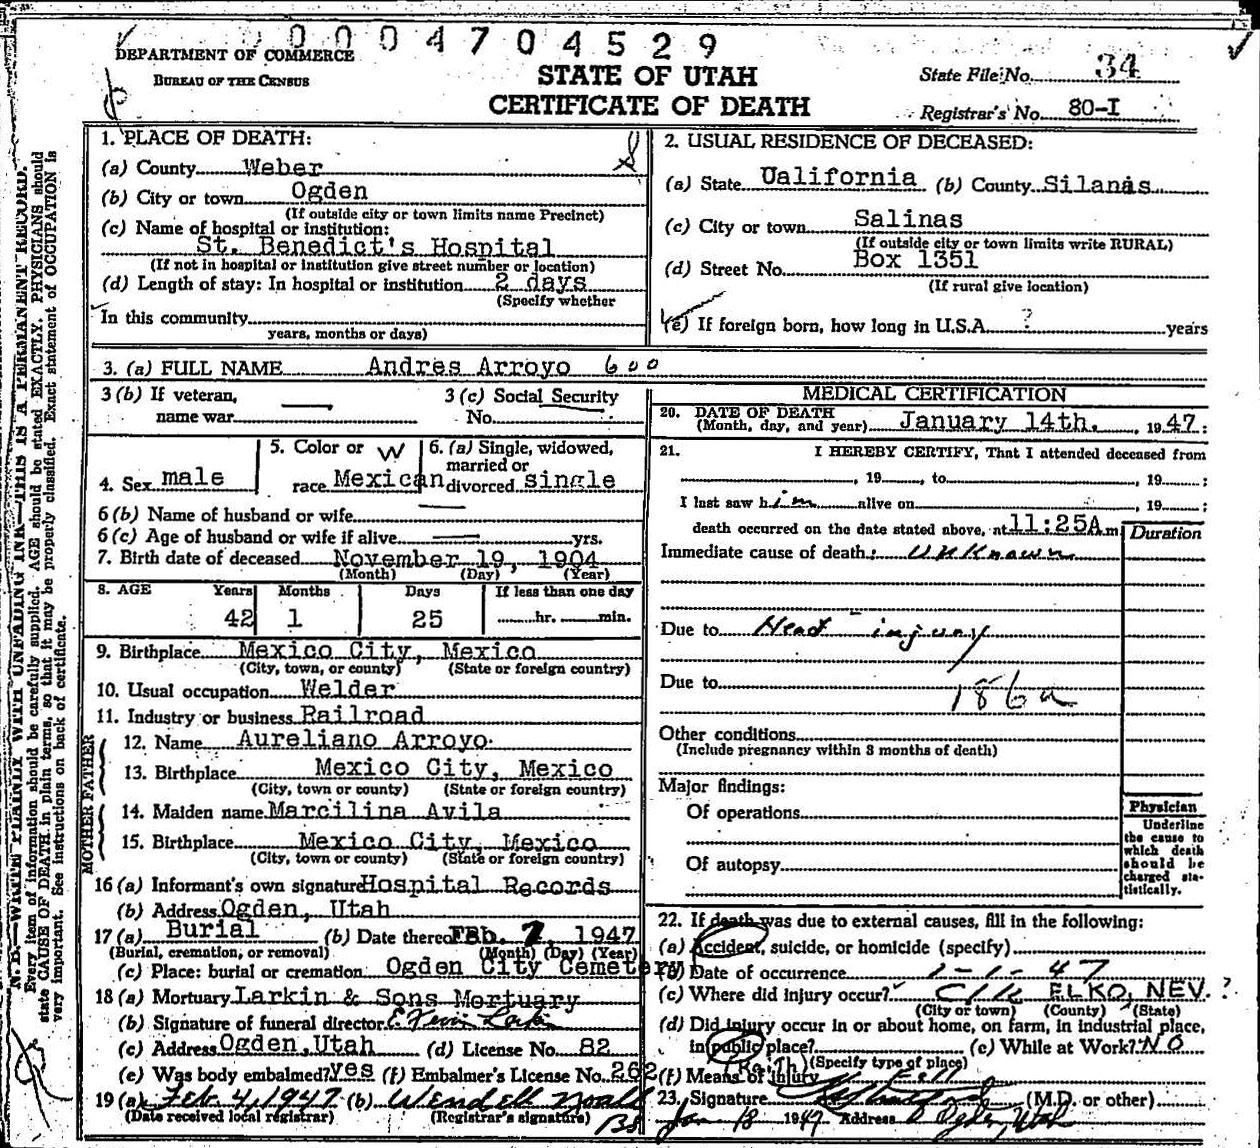 0004704529
DEPARTMENT OF COMMERCE
BUREAU OF THE CENSUS
STATE OF UTAH
CERTIFICATE OF DEATH
State File No. 34
Registrar's No. 80-I
N. B.—WRITE PLAINLY WITH UNFADING INK—THIS IS A PERMANENT RECORD.
Every item of information should be carefully supplied. AGE should be stated EXACTLY. PHYSICIANS should
state CAUSE OF DEATH in plain terms, so that it may be properly classified. Exact statement of OCCUPATION is
very important. See instructions on back of certificate.
1. PLACE OF DEATH:
(a) County Weber
(b) City or town Ogden
(If outside city or town limits name Precinct)
(c) Name of hospital or institution:
St. Benedict's Hospital
(If not in hospital or institution give street number or location)
(d) Length of stay: In hospital or institution 2 days
(Specify whether
In this community
years, months or days)
2. USUAL RESIDENCE OF DECEASED:
(a) State Ualifornia (b) County Silanas
(c) City or town Salinas
(If outside city or town limits write RURAL)
(d) Street No. Box 1351
(If rural give location)
(e) If foreign born, how long in U.S.A. ? years
3. (a) FULL NAME Andres Arroyo 600
3 (b) If veteran,
name war
3 (c) Social Security
No.
4. Sex male
5. Color or W
race Mexican
6. (a) Single, widowed,
married or
divorced single
6 (b) Name of husband or wife
6 (c) Age of husband or wife if alive yrs.
7. Birth date of deceased November 19, 1904
(Month) (Day) (Year)
8. AGE Years Months Days If less than one day
42 1 25 hr. min.
9. Birthplace Mexico City, Mexico
(City, town, or county) (State or foreign country)
10. Usual occupation Welder
11. Industry or business Railroad
FATHER
12. Name Aureliano Arroyo
13. Birthplace Mexico City, Mexico
(City, town or county) (State or foreign country)
MOTHER
14. Maiden name Marcilina Avila
15. Birthplace Mexico City, Mexico
(City, town or county) (State or foreign country)
16 (a) Informant's own signature Hospital Records
(b) Address Ogden, Utah
17 (a) Burial (b) Date thereof Feb. 1947
(Burial, cremation, or removal) (Month) (Day) (Year)
(c) Place: burial or cremation Ogden City Cemetery
18 (a) Mortuary Larkin & Sons Mortuary
(b) Signature of funeral director Larkin
(c) Address Ogden, Utah (d) License No. 82
(e) Was body embalmed? yes (f) Embalmer's License No. 262
19 (a) Feb 4, 1947 (b) Wendell Noall
(Date received local registrar) (Registrar's signature)
MEDICAL CERTIFICATION
20. DATE OF DEATH
(Month, day, and year) January 14th. , 1947:
21. I HEREBY CERTIFY, That I attended deceased from
, 19 , to , 19 ;
I last saw him alive on , 19 ;
death occurred on the date stated above, at 11:25A.m
Duration
Immediate cause of death: unknown
Due to Head injury
Due to
186a
Other conditions
(Include pregnancy within 3 months of death)
Major findings:
Of operations
Of autopsy
Physician
Underline
the cause to
which death
should be
charged sta-
tistically.
22. If death was due to external causes, fill in the following:
(a) Accident, suicide, or homicide (specify)
(b) Date of occurrence 1-1-47
(c) Where did injury occur? ELKO, NEV. ?
(City or town) (County) (State)
(d) Did injury occur in or about home, on farm, in industrial place,
in public place? (e) While at Work? No
(Specify type of place)
(f) Means of injury Fell
23. Signature (M.D. or other)
Jan 18 1947 Address Ogden, Utah